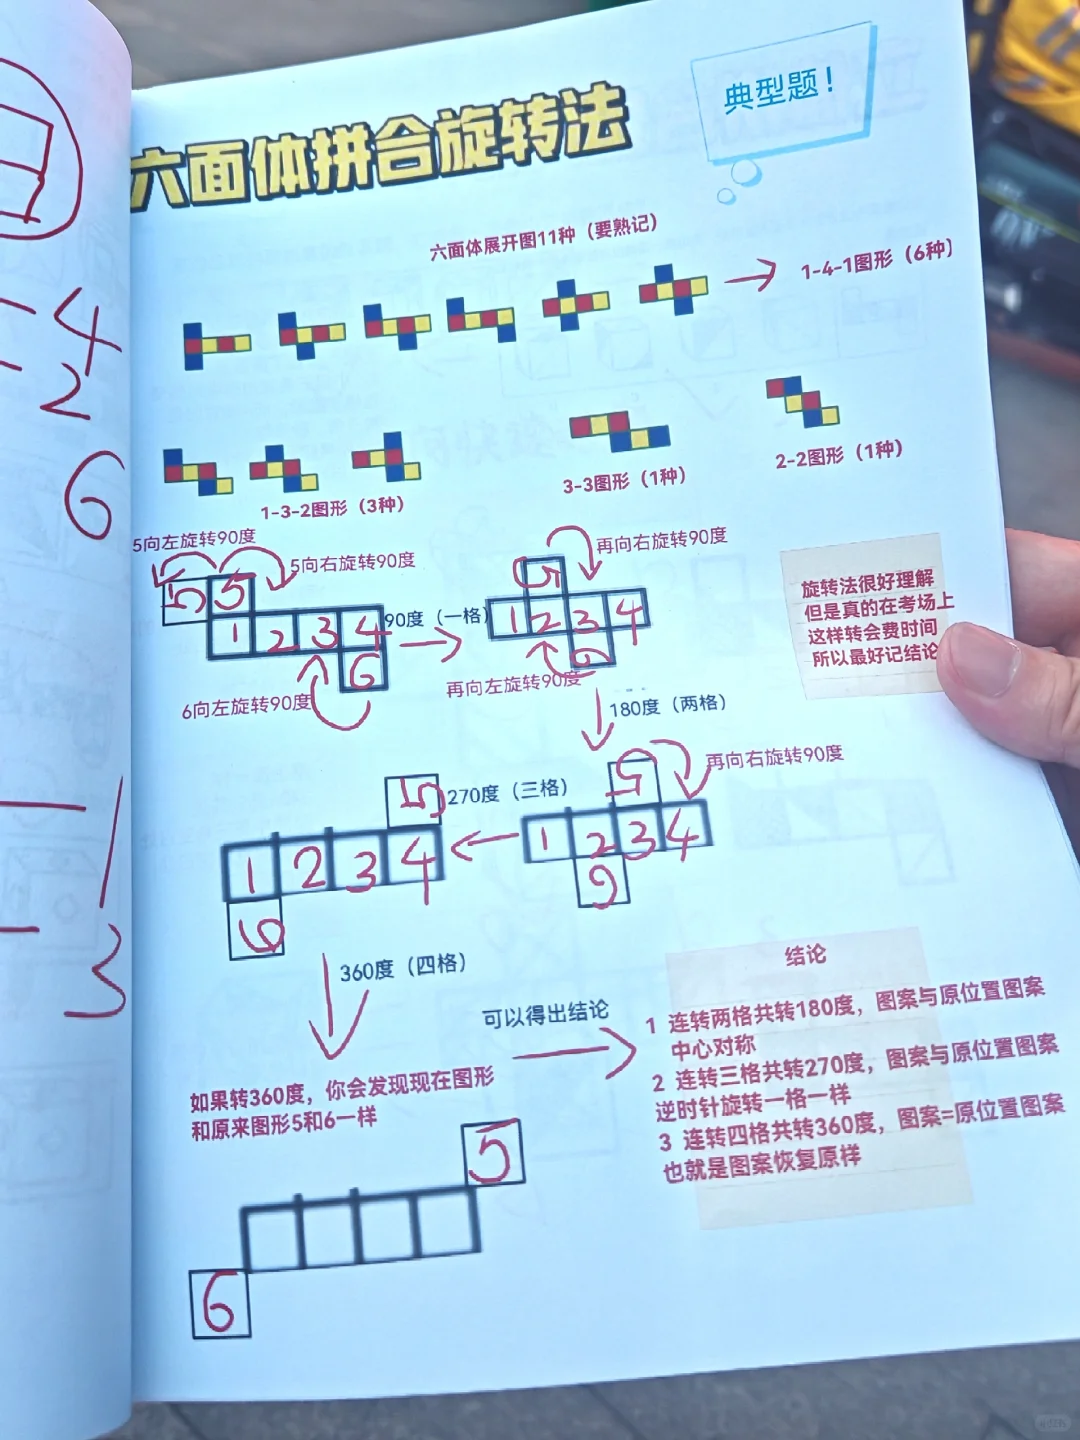 典型题!
六面体拼合旋转法
六面体展开图11种（要熟记）
1-4-1图形（6种）
1-3-2图形（3种）
3-3图形（1种）
2-2图形（1种）
4
2
6
1
3
5向左旋转90度
5向右旋转90度
5 5
1 2 3 4
6
6向左旋转90度
90度（一格）
再向右旋转90度
5
1 2 3 4
6
再向左旋转90度
旋转法很好理解
但是真的在考场上
这样转会费时间
所以最好记结论
180度（两格）
再向右旋转90度
5
1 2 3 4
6
270度（三格）
5
1 2 3 4
6
360度（四格）
如果转360度，你会发现现在图形
和原来图形5和6一样
5
6
可以得出结论
结论
1 连转两格共转180度，图案与原位置图案
中心对称
2 连转三格共转270度，图案与原位置图案
逆时针旋转一格一样
3 连转四格共转360度，图案=原位置图案
也就是图案恢复原样